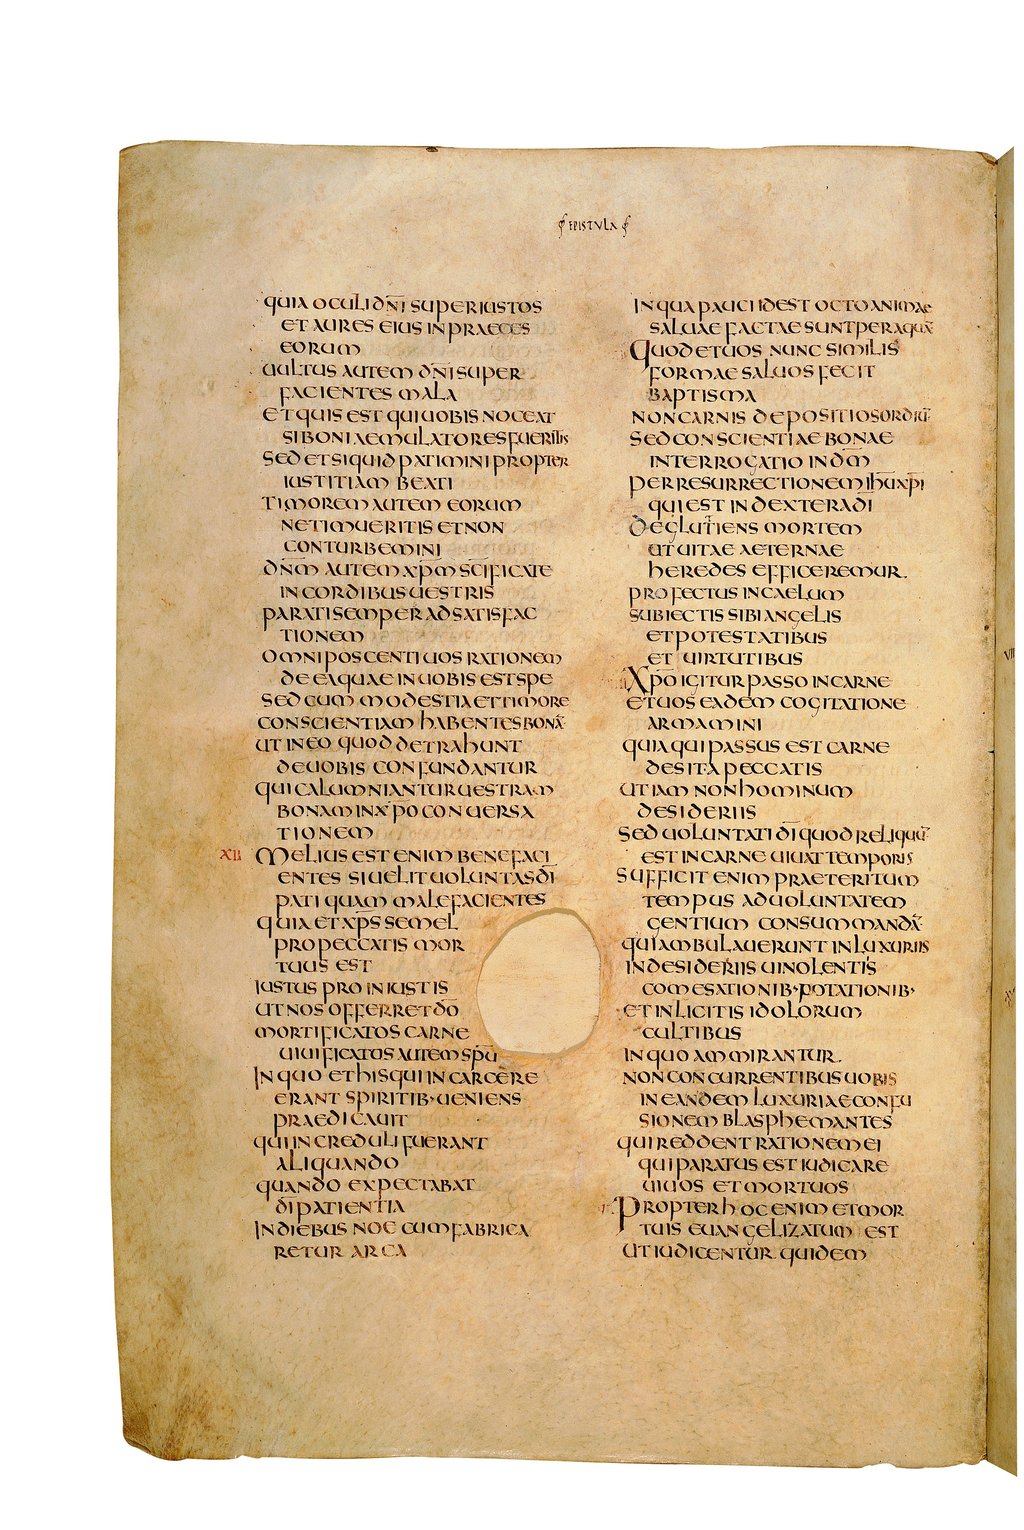 EPISTVLA
quia oculi dn̄i super iustos
et aures eius in praeces
eorum
uultus autem dn̄i super
facientes mala
et quis est qui uobis noceat
si boni aemulatores fueritis
sed et si quid patimini propter
iustitiam beati
timorem autem eorum
ne timueritis et non
conturbemini
dn̄m autem xp̄m sc̄ificate
in cordibus uestris
parati semper ad satisfac
tionem
omni poscenti uos rationem
de ea quae in uobis est spe
sed cum modestia et timore
conscientiam habentes bonā
ut in eo quod detrahunt
de uobis confundantur
qui calumniantur uestram
bonam in xp̄o conuersa
tionem
XII melius est enim benefaci
entes si uelit uoluntas dī
pati quam malefacientes
quia et xp̄s semel
pro peccatis mor
tuus est
iustus pro iniustis
ut nos offerret dō
mortificatos carne
uiuificatos autem sp̄u
in quo et his qui in carcere
erant spiritib· ueniens
praedicauit
qui increduli fuerant
aliquando
quando expectabat
dī patientia
in diebus noe cum fabrica
retur arca
in qua pauci id est octo animae
saluae factae sunt per aquā
quod et uos nunc similis
formae saluos fecit
baptisma
non carnis depositio sordiū
sed conscientiae bonae
interrogatio in dm̄
per resurrectionem ih̄u xp̄i
qui est in dextera dī
deglutiens mortem
ut uitae aeternae
heredes efficeremur.
profectus in caelum
subiectis sibi angelis
et potestatibus
et uirtutibus
xp̄o igitur passo in carne
et uos eadem cogitatione
armamini
quia qui passus est carne
desiit a peccatis
ut iam non hominum
desideriis
sed uoluntati dī quod reliquū
est in carne uiuat temporis
sufficit enim praeteritum
tempus ad uoluntatem
gentium consummandā
qui ambulauerunt in luxuriis
in desideriis uinolentis
comesationib· potationib·
et inlicitis idolorum
cultibus
in quo ammirantur.
non concurrentibus uobis
in eandem luxuriae confu
sionem blasphemantes
qui reddent rationem ei
qui paratus est iudicare
uiuos et mortuos
propter hoc enim et mor
tuis euangelizatum est
ut iudicentur quidem